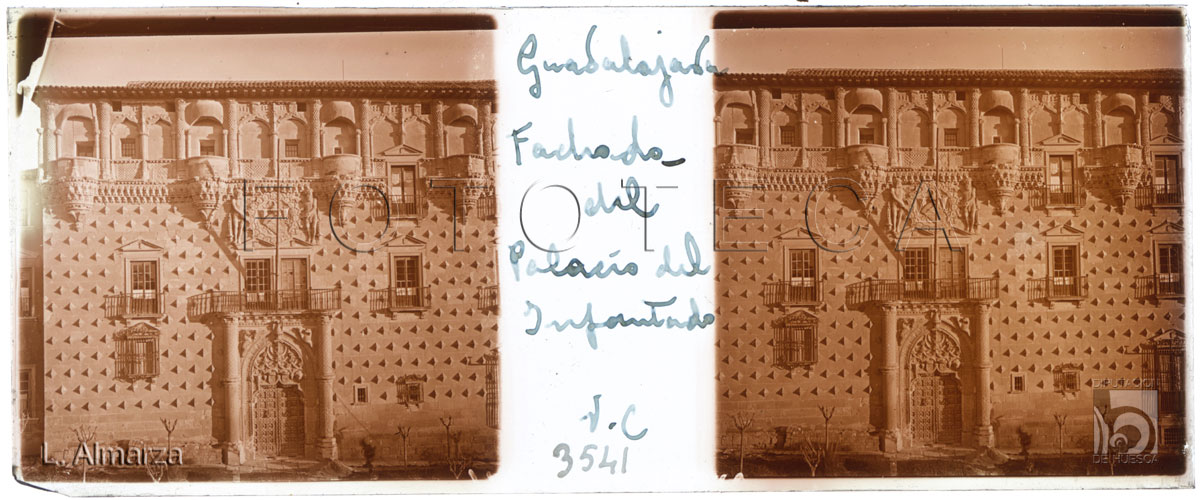 Guadalajara
Fachada
del
Palacio del
Infantado
V.C
3541
FOTOTECA
L. Almarza
DIPUTACIÓN
DE HUESCA